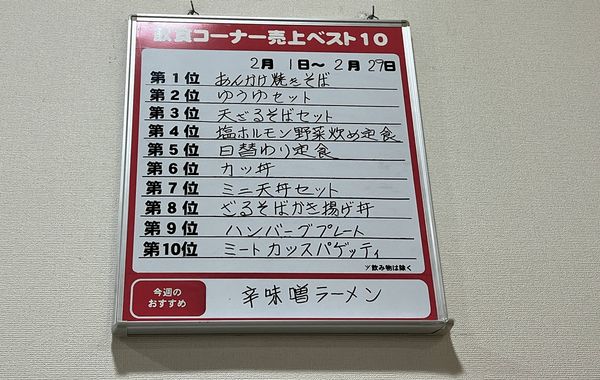 飲食コーナー売上ベスト10
2月 1日〜 2月 29日
第1位 あんかけ焼きそば
第2位 ゆうゆセット
第3位 天ざるそばセット
第4位 塩ホルモン野菜炒め定食
第5位 日替わり定食
第6位 カツ丼
第7位 ミニ天丼セット
第8位 ざるそばかき揚げ丼
第9位 ハンバーグプレート
第10位 ミートカツスパゲッティ
※飲み物は除く
今週の
おすすめ
辛味噌ラーメン